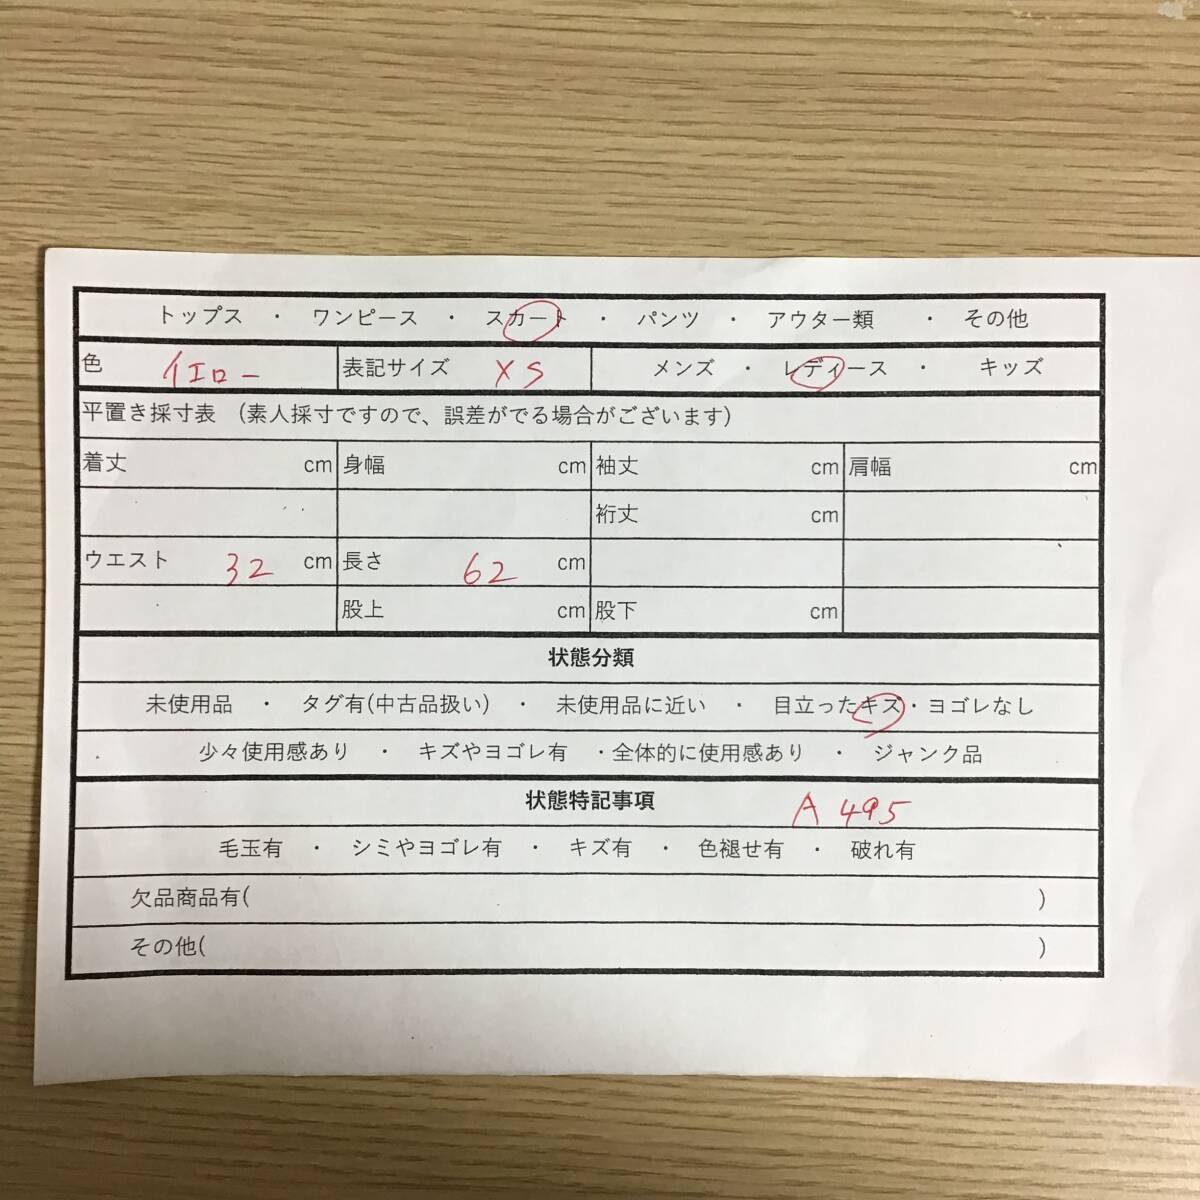 トップス ・ ワンピース ・ スカート ・ パンツ ・ アウター類 ・ その他
色 イエロー 表記サイズ XS メンズ ・ レディース ・ キッズ
平置き採寸表 （素人採寸ですので、誤差がでる場合がございます）
着丈 cm 身幅 cm 袖丈 cm 肩幅 cm
裄丈 cm
ウエスト 32 cm 長さ 62 cm
股上 cm 股下 cm
状態分類
未使用品 ・ タグ有(中古品扱い) ・ 未使用品に近い ・ 目立ったキズ・ヨゴレなし
少々使用感あり ・ キズやヨゴレ有 ・全体的に使用感あり ・ ジャンク品
状態特記事項 A 495
毛玉有 ・ シミやヨゴレ有 ・ キズ有 ・ 色褪せ有 ・ 破れ有
欠品商品有( )
その他( )